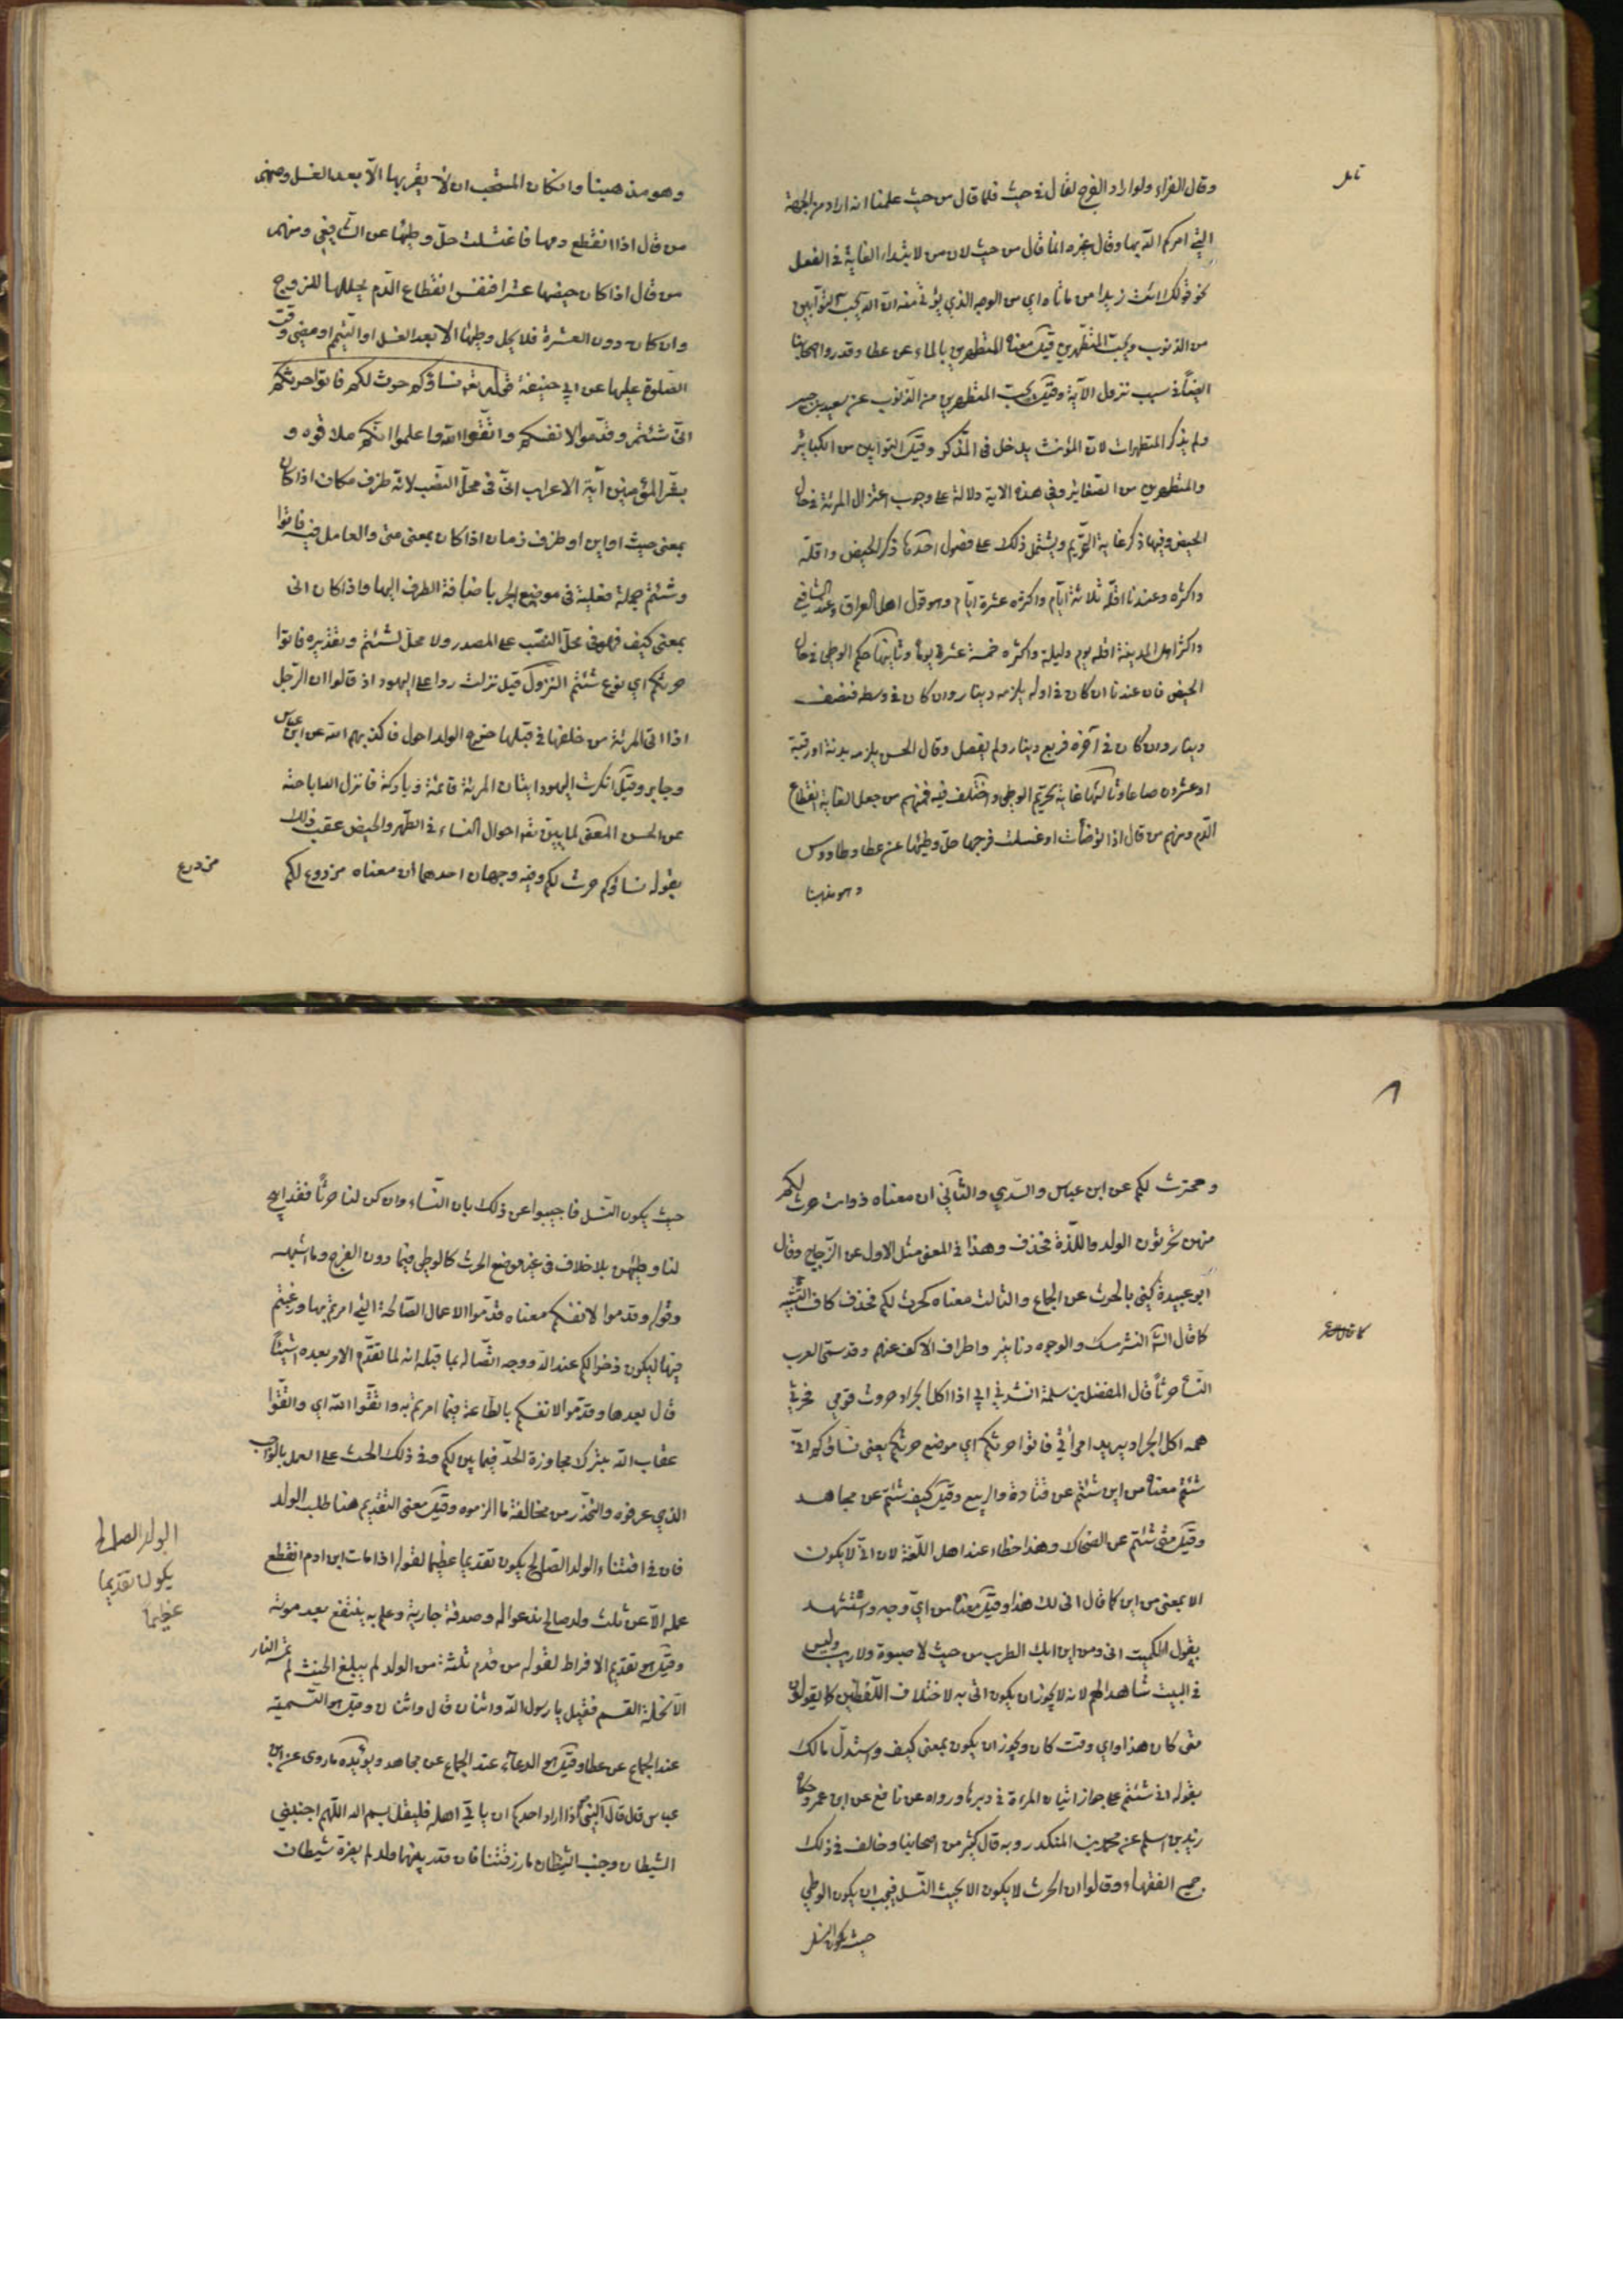 وقال الفراء ولو اراد الفرج لقال في حيث فلما قال من حيث علمنا انه اراد من الجهة
التي امركم الله بها وقال غيره انما قال من حيث لان من لابتداء الغاية في الفعل
نحو قولك ائت زيدا من ماتاه اي من الوجه الذي يؤتى منه ان الله يحب التوابين
من الذنوب ويحب المتطهرين وقيل معناه المتطهرين بالماء عن عطا وقد رواه اصحابنا
ايضا في سبب نزول الآية وقيل يحب المتطهرين من الذنوب عن سعيد بن جبير
ولم يذكر المتطهرات لان المؤنث يدخل في المذكر وقيل التوابين من الكبائر
والمتطهرين من الصغاير وفي هذه الاية دلالة على وجوب اعتزال المرئة في حال
الحيض وفيها ذكر غاية التحريم ويشتمل ذلك على فصول احدها ذكر الحيض واقله
واكثره وعندنا اقله ثلاثة ايام واكثره عشرة ايام وهو قول اهل العراق وعند الشافعي
واكثر اهل المدينة اقله يوم وليلة واكثره خمسة عشر يوما وثانيها حكم الوطي في حال
الحيض فان عندنا ان كان في اوله يلزمه دينار وان كان في وسطه فنصف
دينار وان كان في آخره فربع دينار ولم يفصل وقال الحسن يلزمه بدنة او رقبة
او عشرون صاعا وثالثها غاية تحريم الوطي واختلف فيه فمنهم من جعل الغاية انقطاع
الدم ومنهم من قال اذا توضأت او غسلت فرجها حل وطيها عن عطا وطاووس
وهو مذهبنا
وهو مذهبنا وان كان المستحب ان لا يقربها الا بعد الغسل ومنهم
من قال اذا انقطع دمها فاغتسلت حل وطيها عن الشافعي ومنهم
من قال اذا كان حيضها عشرا فنفس انقطاع الدم يحللها للزوج
وان كان دون العشرة فلا يحل وطيها الا بعد الغسل او التيمم او مضى وقت
الصلوة عليها عن ابي حنيفة قوله تعه نساؤكم حرث لكم فاتوا حرثكم
انى شئتم وقدموا لانفسكم واتقوا الله واعلموا انكم ملاقوه و
بشر المؤمنين آية الاعراب انى في محل النصب لانه ظرف مكان اذا كان
بمعنى حيث او اين او ظرف زمان اذا كان بمعنى متى والعامل فيه فاتوا
وشئتم جملة فعلية في موضع الجر باضافة الظرف اليها واذا كان انى
بمعنى كيف فهو في محل النصب على المصدر ولا محل لشئتم وتقديره فاتوا
حرثكم اي نوع شئتم النزول قيل نزلت ردا على اليهود اذ قالوا ان الرجل
اذا اتى المرئة من خلفها في قبلها خرج الولد احول فاكذبهم الله عن ابن عباس
وجابر وقيل انكرت اليهود اتيان المرئة قائمة وباركة فانزل الله اباحته
عن الحسن المعنى لما بين تعه احوال النساء في الطهر والحيض عقب ذلك
بقوله نساؤكم حرث لكم وفيه وجهان احدهما ان معناه مزدرع لكم
مزدرع
ومحترث لكم عن ابن عباس والسدي والثاني ان معناه ذوات حرث لكم
منهن تحرثون الولد واللذة فحذف وهذا في المعنى مثل الاول عن الزجاج وقال
ابو عبيدة كنى بالحرث عن الجماع والثالث معناه كحرث لكم فحذف كاف التشبيه
كما قال الشاعر النشر مسك والوجوه دنانير واطراف الاكف عنم وقد سمى العرب
النساء حرثا قال المفضل بن سلمة انشدني ابي اذا اكل الجراد حروث قومي فحرثي
همه اكل الجراد يريد امرأتي فاتوا حرثكم اي موضع حرثكم يعني نساؤكم انى
شئتم معناه من اين شئتم عن قتادة والربيع وقيل كيف شئتم عن مجاهد
وقيل متى شئتم عن الضحاك وهذا خطاء عند اهل اللغة لان انى لا يكون
الا بمعنى من اين كما قال انى لك هذا وقيل معناه من اي وجه واستشهد
بقول الكميت انى ومن اين ابك الطرب من حيث لا صبوة ولا ريب وليس
في البيت شاهد لهم لانه لا يجوز ان يكون اتى به لاختلاف اللفظين كما يقولون
متى كان هذا واي وقت كان ويجوز ان يكون بمعنى كيف واستدل مالك
بقوله انى شئتم على جواز اتيان المرءة في دبرها ورواه عن نافع عن ابن عمر وحكاه
زيد بن اسلم عن محمد بن المنكدر وبه قال كثير من اصحابنا وخالف في ذلك
جميع الفقهاء وقالوا ان الحرث لا يكون الا بحيث النسل فيجب ان يكون الوطي
حيث يكون النسل
حيث يكون النسل فاجيبوا عن ذلك بان النساء وان كن لنا حرثا فقد ابيح
لنا وطيهن بلا خلاف في غير موضع الحرث كالوطي فيما دون الفرج وما اشبهه
وقوله وقدموا لانفسكم معناه قدموا الاعمال الصالحة التي امرتم بها ورغبتم
فيها ليكون ذخرا لكم عند الله ووجه اتصاله بما قبله انه لما تقدم الامر بعده اشياء
قال بعدها وقدموا لانفسكم بالطاعة فيما امرتم به واتقوا الله اي واتقوا
عقاب الله بترك مجاوزة الحد فيما بين لكم وفي ذلك الحث على العمل بالواجب
الذي عرفوه والتحذر من مخالفة ما الزموه وقيل معنى التقديم هنا طلب الولد
فان في اقتناء الولد الصالح يكون تقديما عظيما لقوله اذا مات ابن ادم انقطع
عمله الا عن ثلث ولد صالح يدعو له وصدقة جارية وعلم به ينتفع بعد موته
وقيل هو تقديم الافراط لقوله من قدم ثلثة من الولد لم يبلغ الحنث لم تمسه النار
الا تحلة القسم فقيل يا رسول الله واثنان قال واثنان وقيل هو التسمية
عند الجماع عن عطا وقيل هو الدعاء عند الجماع عن مجاهد ويؤيده ما روى عن ابن
عباس قال قال النبي اذا اراد احدكم ان ياتي اهله فليقل بسم الله اللهم اجنبني
الشيطان وجنب الشيطان ما رزقتنا فان قدر بينهما ولد لم يضره شيطان
الولد الصالح
يكون تقديما
عظيما